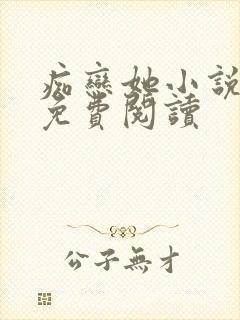 痴戀她小說
免費閱讀
公子無才